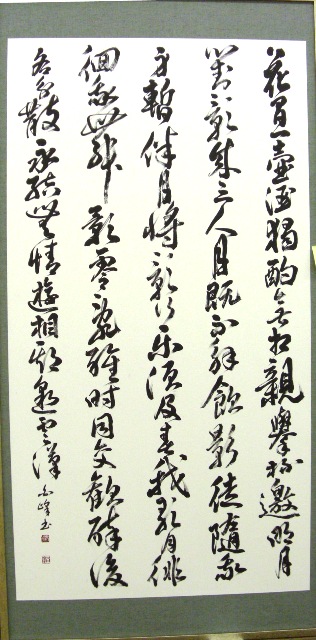 花間一壺酒獨酌無相親舉杯邀明月
對影成三人月既不解飲影徒隨我
身暫伴月將影行樂須及春我歌月徘
徊我舞影零亂醒時同交歡醉後
各分散永結無情遊相期邈雲漢 峰書